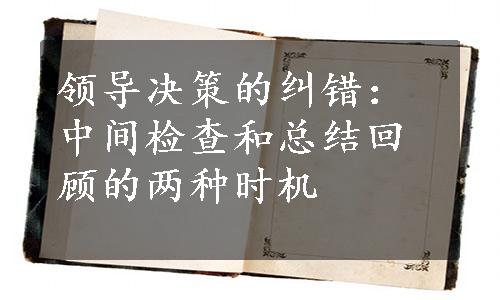 领导决策的纠错：
中间检查和总结回
顾的两种时机